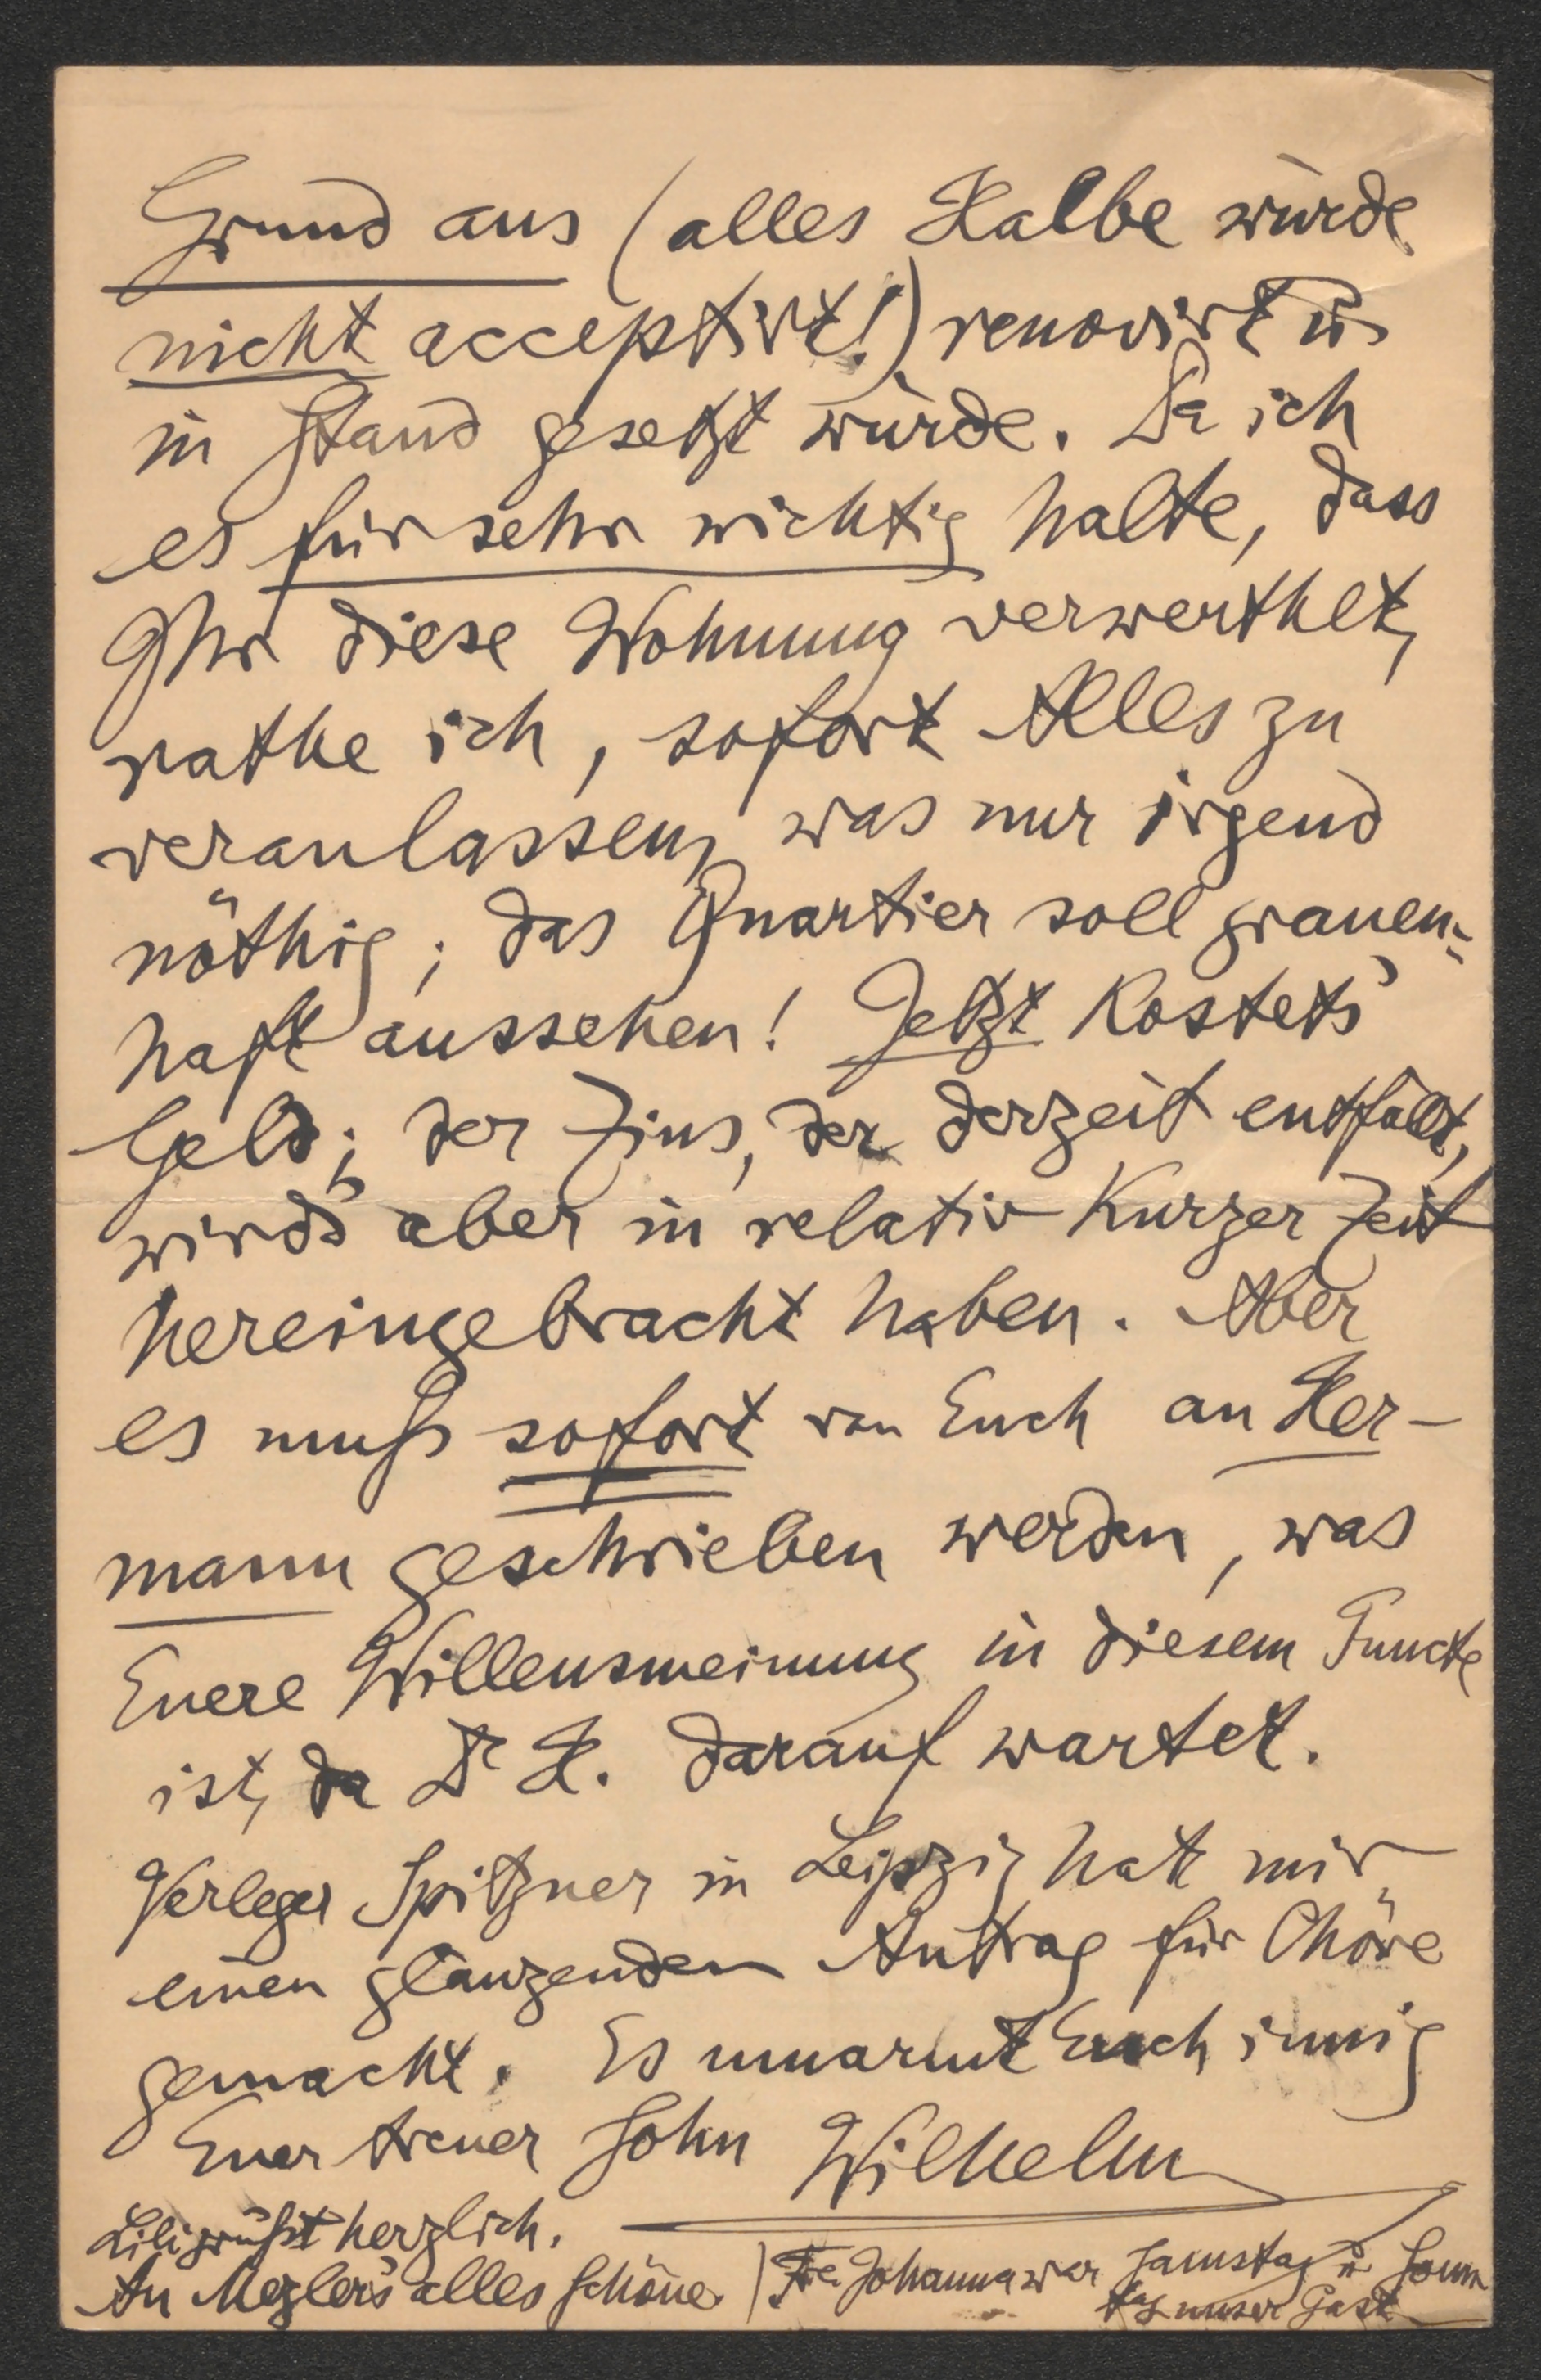 Grund aus (alles Halbe würde
nicht acceptirt!) renovirt u.
in Stand gesetzt würde. Da ich
es für sehr wichtig halte, dass
Ihr diese Wohnung verwerthet,
rathe ich, sofort Alles zu
veranlassen, was nur irgend
nöthig; das Quartier soll grauen=
haft aussehen! Jetzt kostet's
Geld; der Zins, der derzeit entfällt,
wird's aber in relativ kurzer Zeit
hereingebracht haben. Aber
es muß sofort von Euch an Her-
mann geschrieben werden, was
Euere Willensmeinung in diesem Puncte
ist, da Dr H. darauf wartet.
Verleger Spitzner in Leipzig hat mir
einen glänzenden Antrag für Chöre
gemacht. Es umarmt Euch innig
Euer treuer Sohn Wilhelm
Lili grüßt herzlich.
An Mezler's alles Schöne | Johanna war Samstag u. Sonn
tag unser Gast